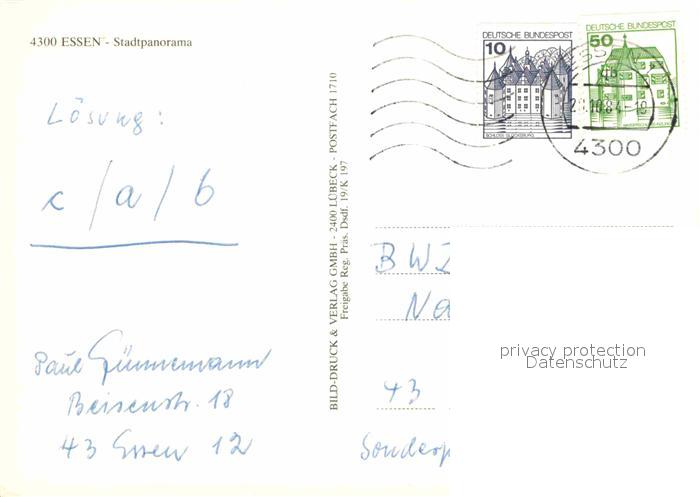 4300 ESSEN - Stadtpanorama
Lösung:
c / a / b
Paul Günnemann
Beisenstr. 18
43 Essen 12
BILD-DRUCK & VERLAG GMBH - 2400 LÜBECK - POSTFACH 1710
Freigabe Reg. Präs. Dsdf. 19/K 197
DEUTSCHE BUNDESPOST
10
SCHLOSS GLÜCKSBURG
DEUTSCHE BUNDESPOST
50
ESSEN
4300
BWI
Na
privacy protection
Datenschutz
43
Sonderp